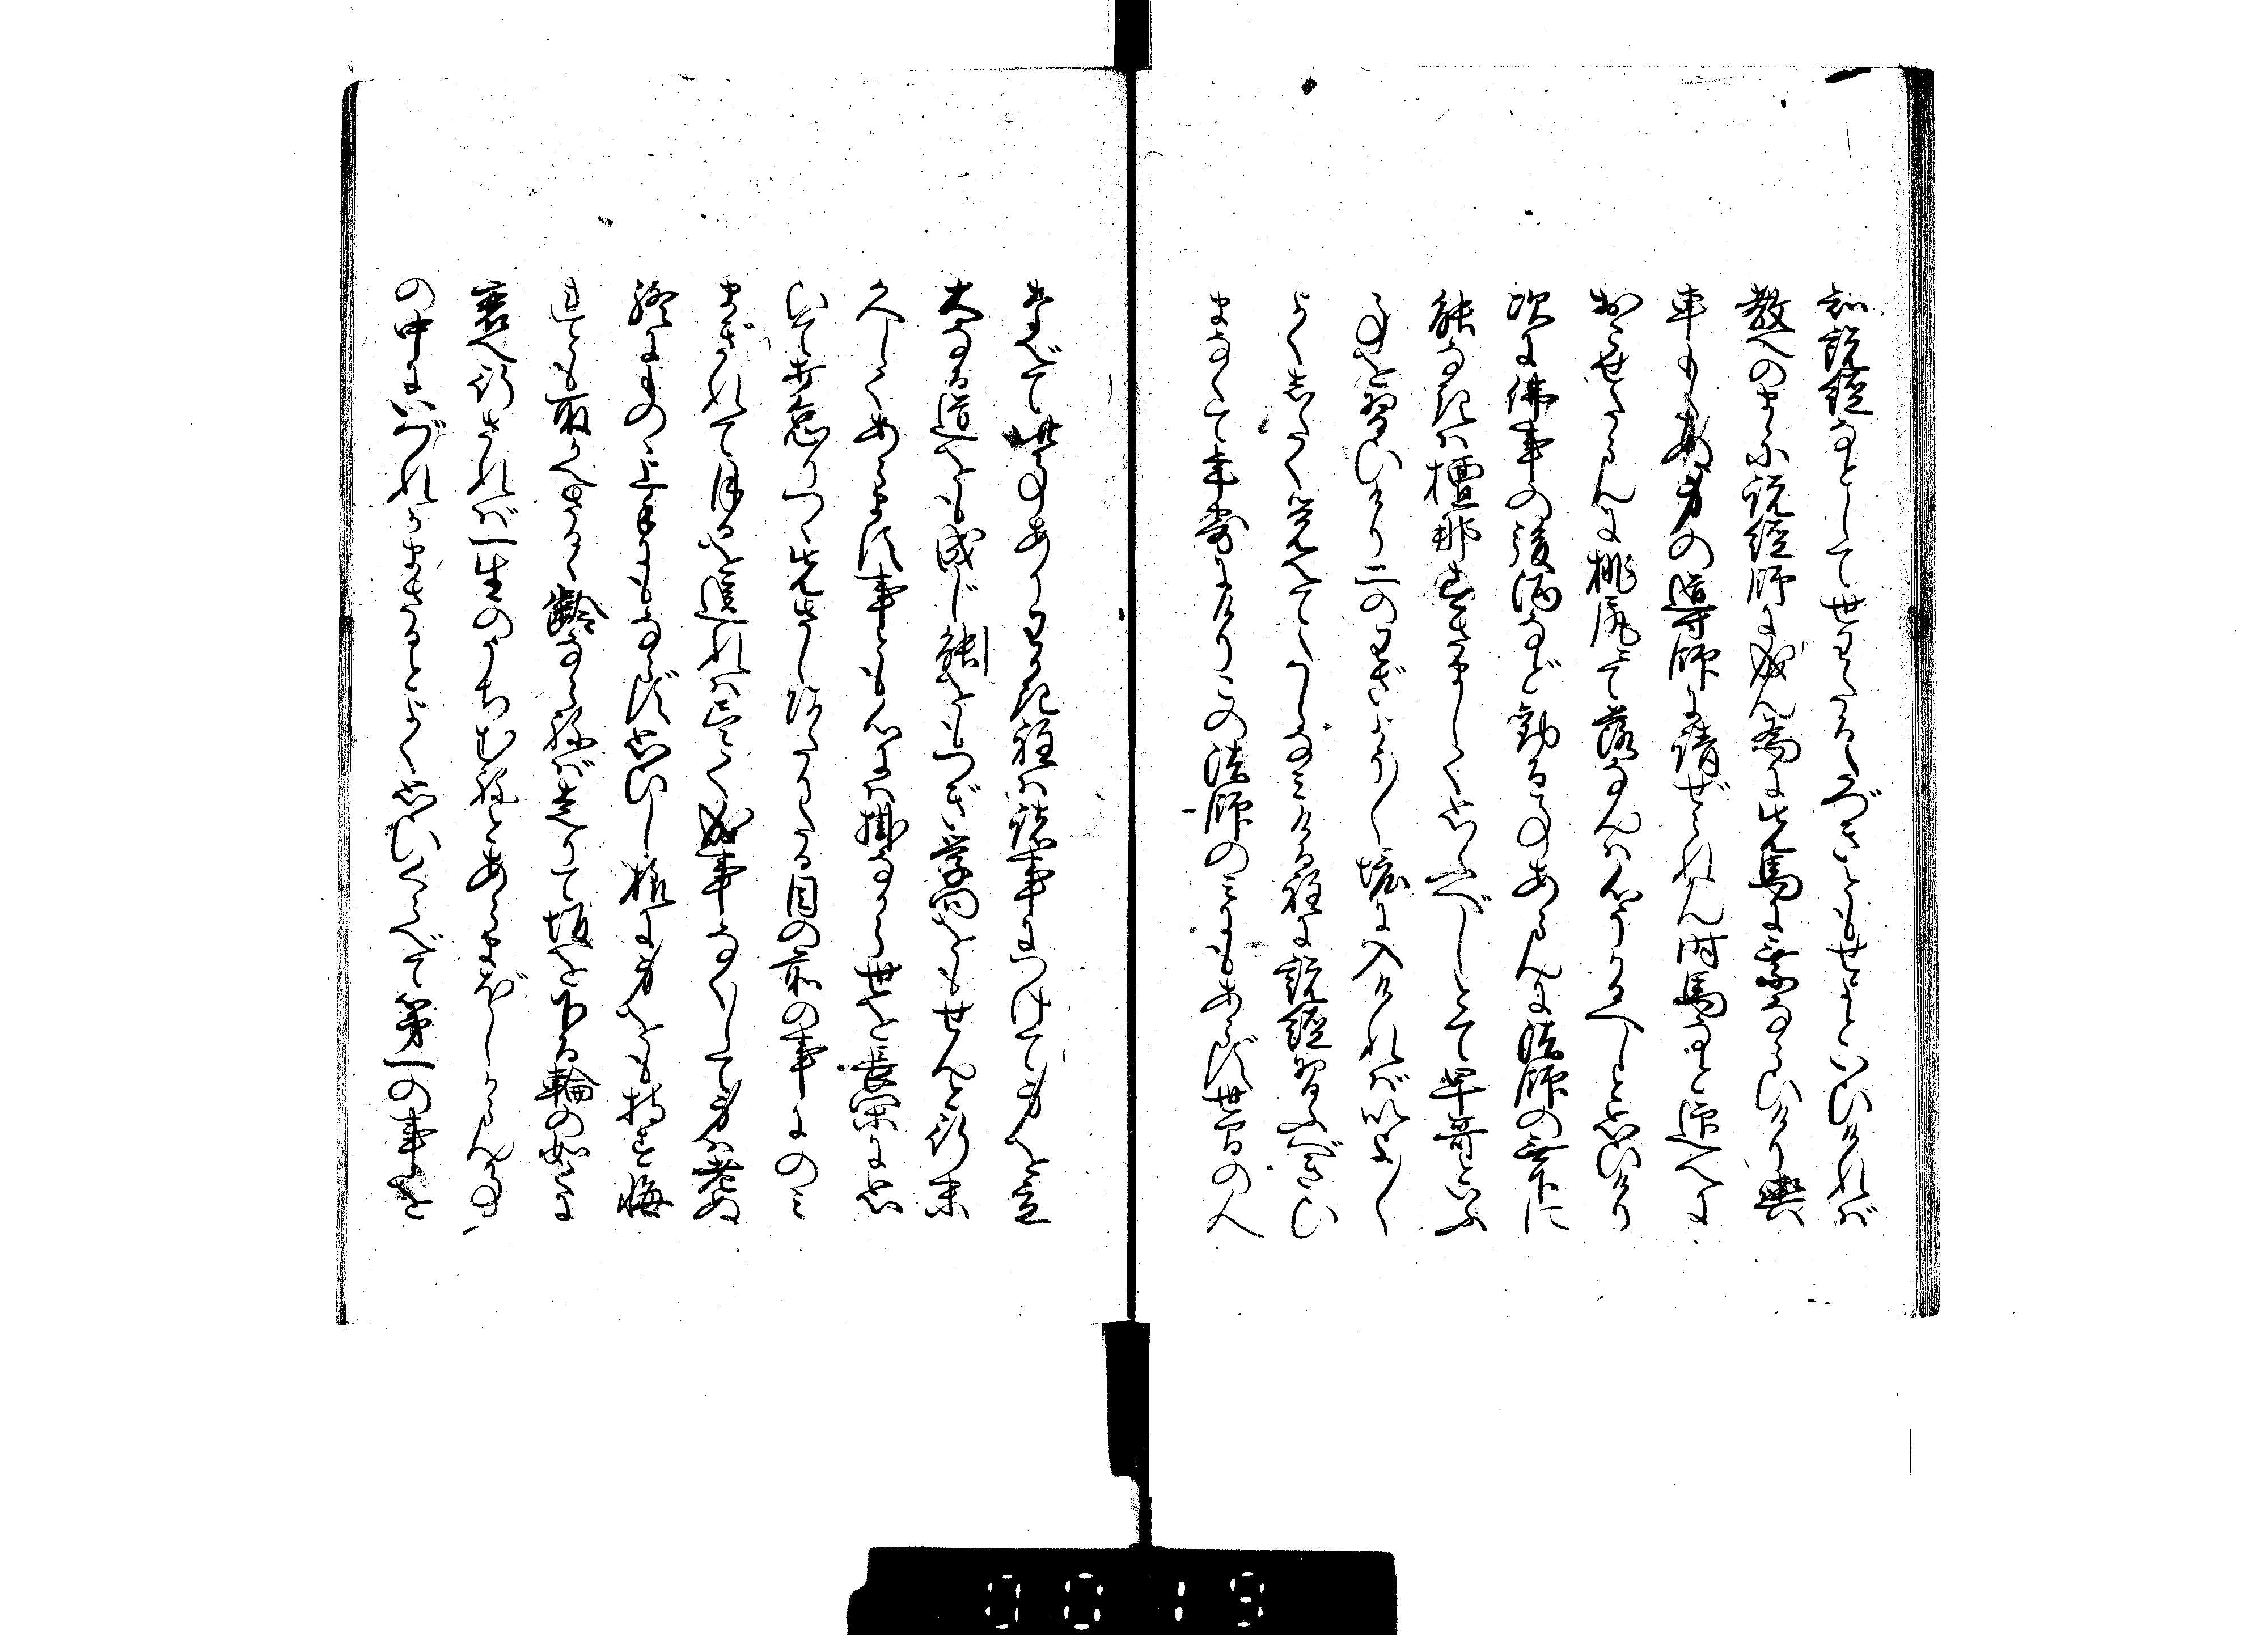 知説経などして世わたるたづきともせよといひければ
教へのまゝに説経師に成ん為に先馬に乗ならひけり輿
車もたぬ身の導師に請ぜられん時馬など迎へに
おこせたらんに桃尻にて落なんは心うかるべしと思ひけり
次に佛事の後酒など勧る事あらんに法師の無下に
能なきは檀那すさまじく思ふべしとて早哥といふ
事を習ひけり二のわざやう〱境に入ければいよ〱
よくしたく覚えてたしなみける程に説経習ふべきひ
まなくて年寄にけりこの法師のみにもあらず世間の人
なべて此事あり若き程は諸事につけて身を立
大なる道をも成じ能をもつぎ学問をもせんと行末
久しくあらます事ども心には掛ながら世を長閑に思
ひて打怠りつゝ先さし当りたる目の前の事にのみ
まぎれて月日を送れは事〱成事なくして身は老ぬ
終にものゝ上手にもならず思ひし様に身をも持ず悔
れども取かへさるゝ齢ならねば走りて坂を下る輪の如くに
衰へ行されば一生のうちむねとあらまほしからん事
の中にいづれかまさるとよく思ひくらべて第一の事を
0019